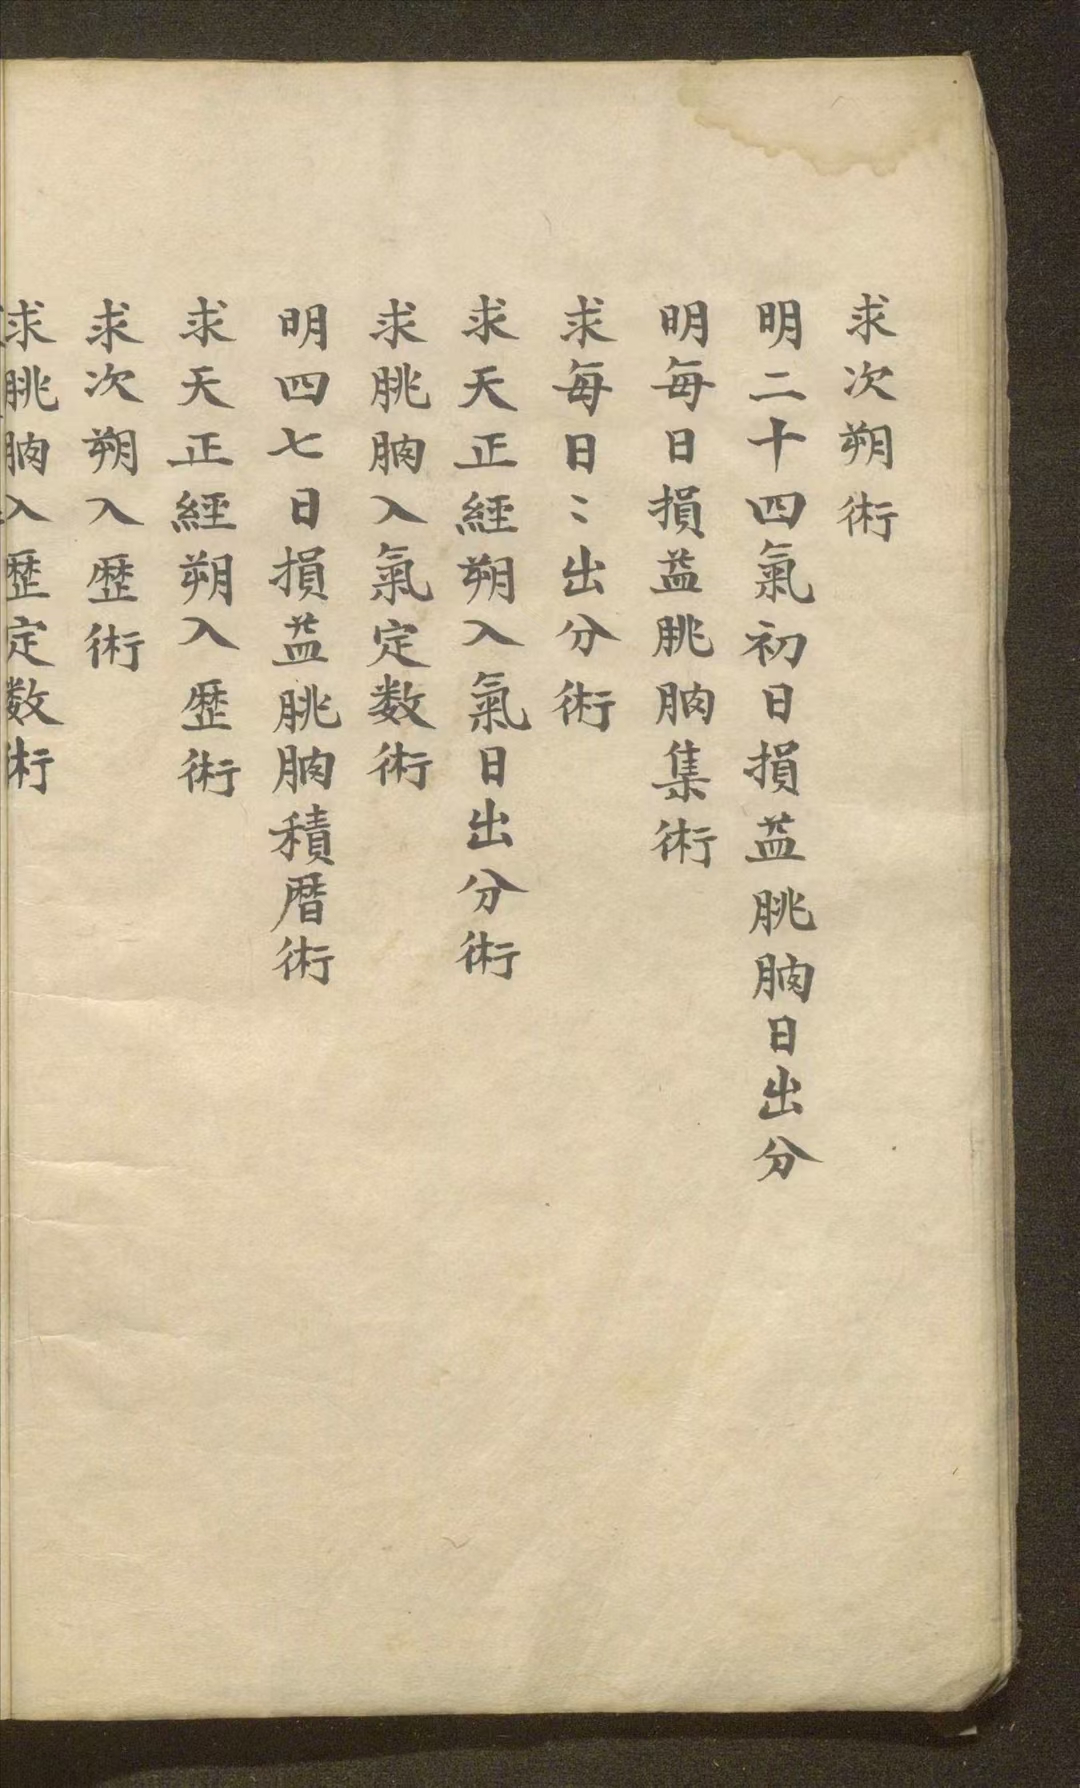 求次朔術
明二十四氣初日損益朓朒日出分
明每日損益朓朒集術
求每日〻出分術
求天正經朔入氣日出分術
求朓朒入氣定数術
明四七日損益朓朒積暦術
求天正經朔入歴術
求次朔入歴術
求朓朒入歴定数術